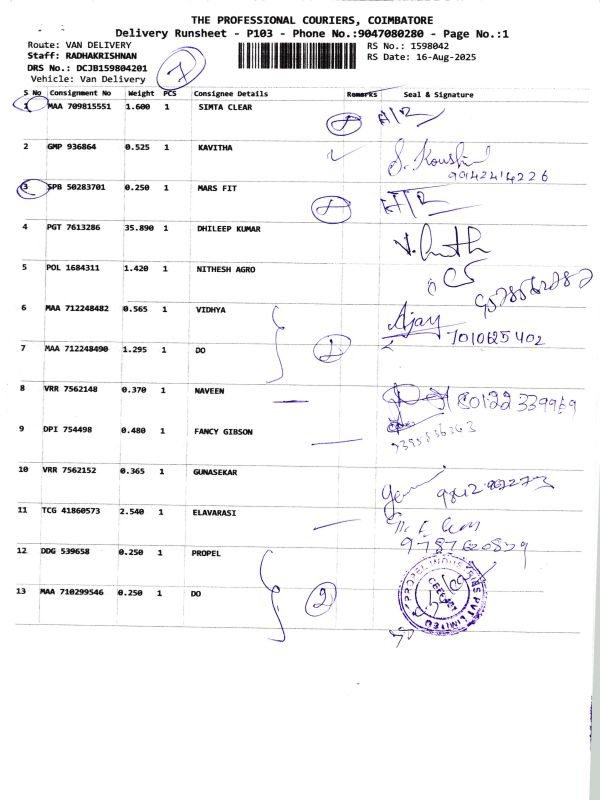 THE PROFESSIONAL COURIERS, COIMBATORE
Delivery Runsheet - P103 - Phone No.:9047080280 - Page No.:1
Route: VAN DELIVERY
RS No.: 1598042
Staff: RADHAKRISHNAN
RS Date: 16-Aug-2025
DRS No.: DCJB159804201
Vehicle: Van Delivery
7
S No Consignment No Weight PCS Consignee Details Remarks Seal & Signature
1 MAA 709815551 1.600 1 SIMTA CLEAR
2 GMP 936864 0.525 1 KAVITHA
9942414226
3 SPB 50283701 0.250 1 MARS FIT
4 PGT 7613286 35.890 1 DHILEEP KUMAR
5 POL 1684311 1.420 1 NITHESH AGRO
6 MAA 712248482 0.565 1 VIDHYA Ajay
7010625402
7 MAA 712248490 1.295 1 DO
8 VRR 7562148 0.370 1 NAVEEN
9 DPI 754498 0.480 1 FANCY GIBSON
10 VRR 7562152 0.365 1 GUNASEKAR
11 TCG 41860573 2.540 1 ELAVARASI
12 DDG 539658 0.250 1 PROPEL
2
13 MAA 710299546 0.250 1 DO